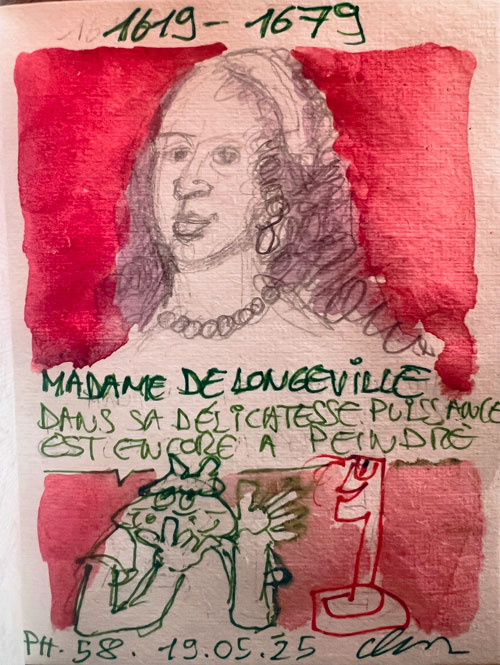 1619 - 1679
MADAME DE LONGEVILLE
DANS SA DÉLICATESSE PUISSANCE
EST ENCORE A PEINDRE
PH. 58. 19.05.25